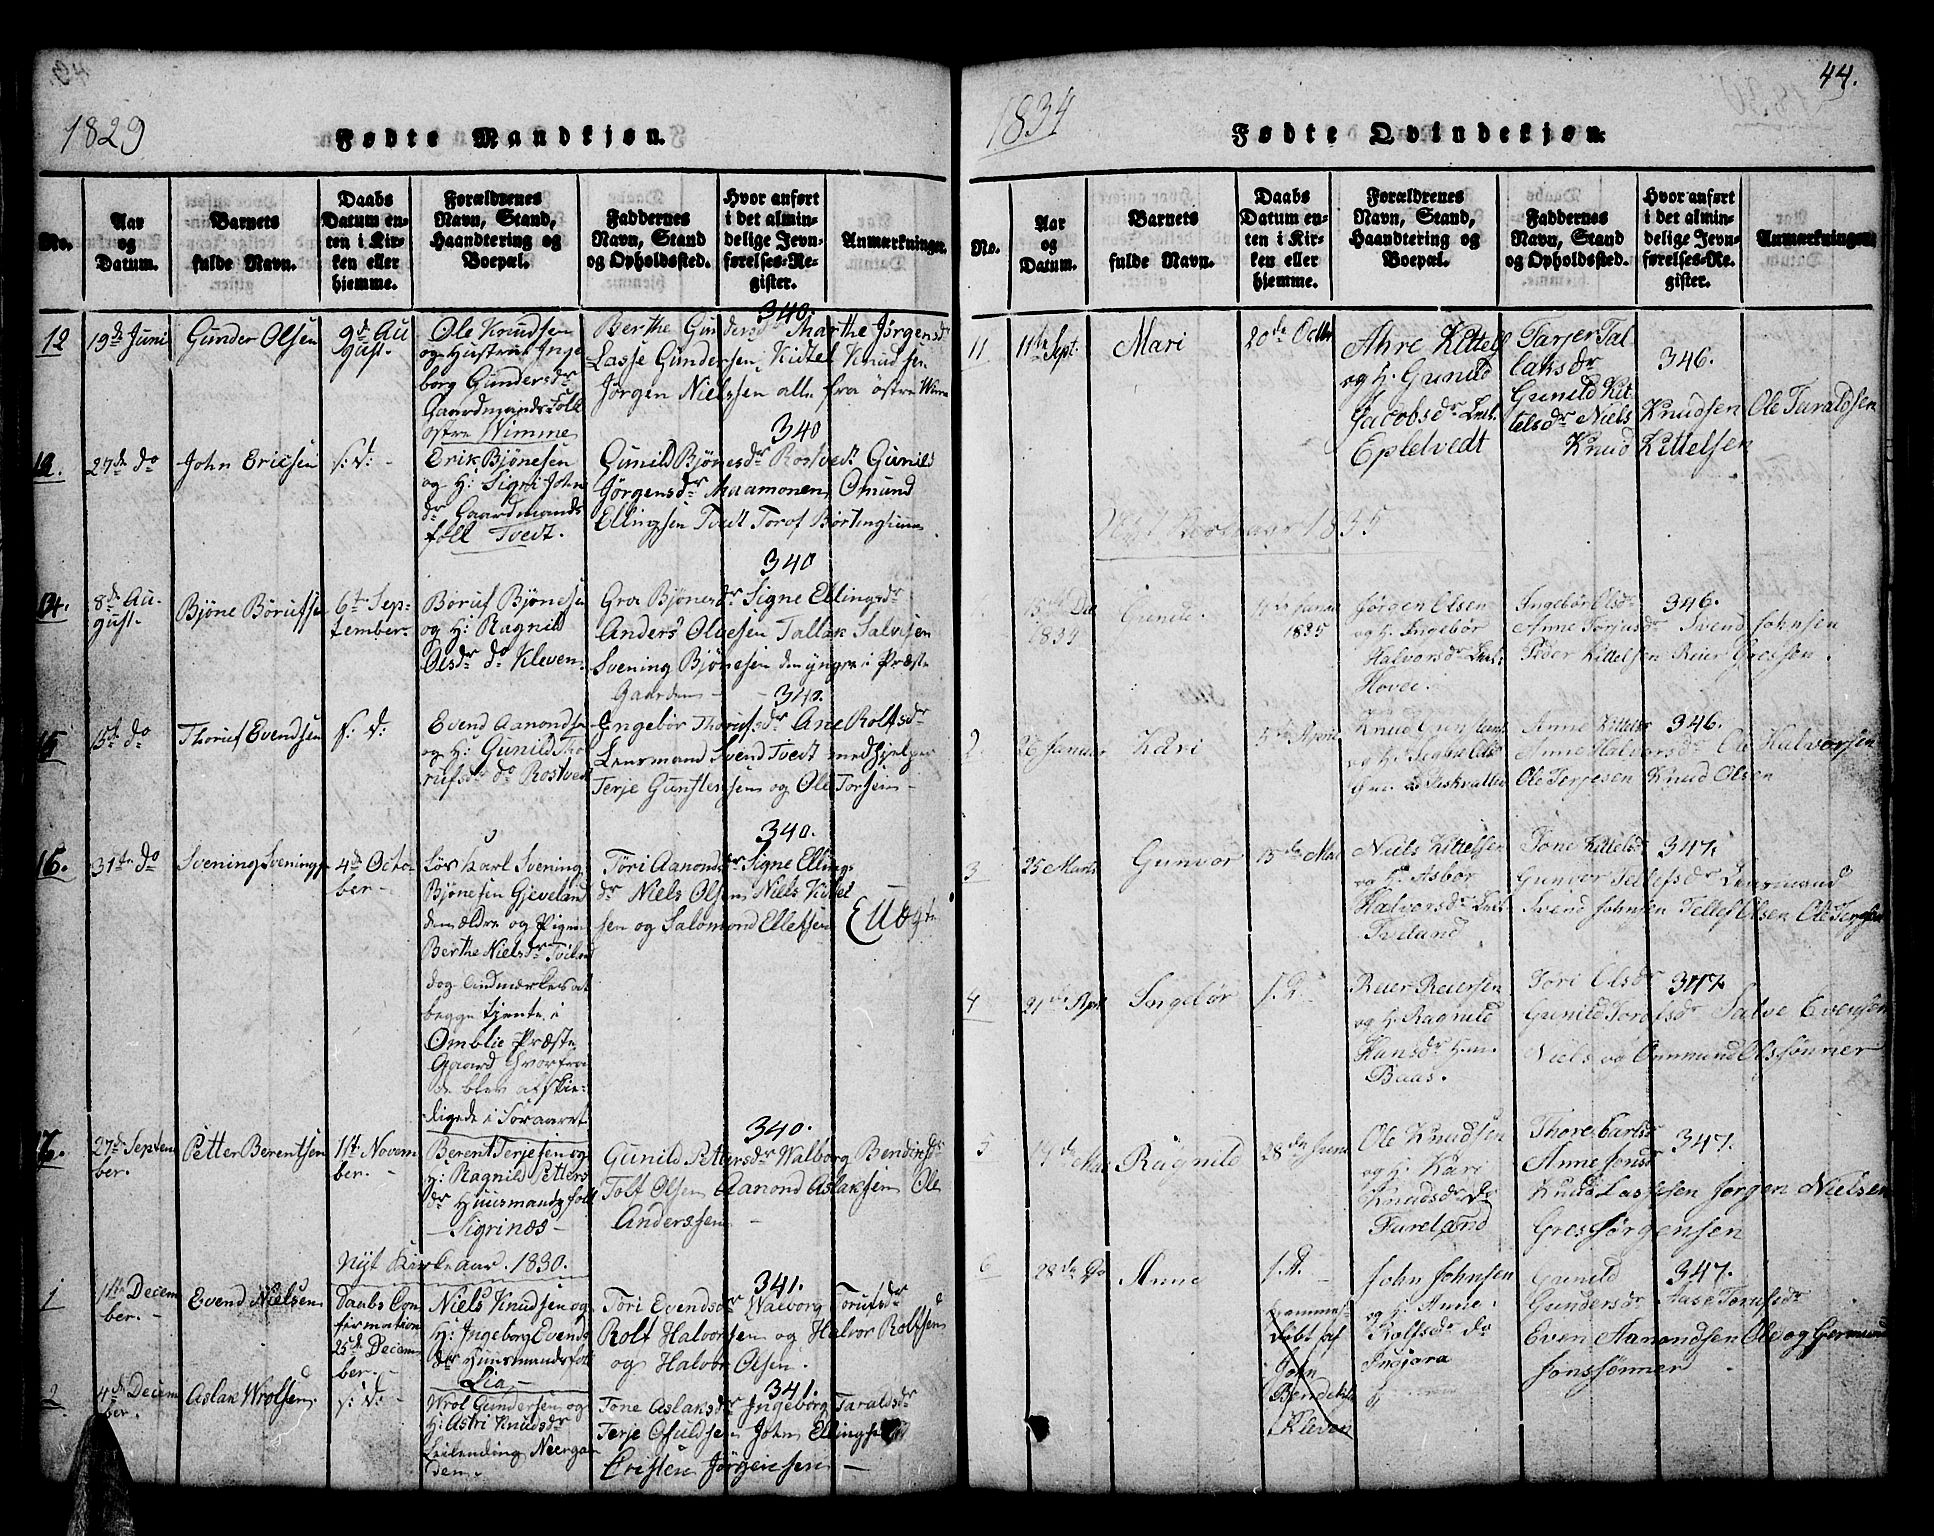 1829
Fødte Mandkjøn.
No.
Aar
og
Datum.
Barnets
fulde Navn.
Daabs
Datum en-
ten i Kir-
ken eller
hjemme.
Forældrenes
Navn, Stand,
Haandtering og
Boepæl.
Faddernes
Navn, Stand
og Opholdssted.
Hvor anført
i det almin-
delige Jevn-
førelses-Re-
gister.
Anmærkninger.
12
19de Juni
Gunder Olsen
9de Au
gust.
Ole Knudsen
og Hustrue Inge
borg Gundersdr
Gaardmands Folk
østre Wimme
340.
Berthe Gundersdr Marthe Jørgensdr
Lasse Gundersen, Kittel Knudsen
Jørgen Nielssen alle fra østre Wime
27de do
John Ericsen
s: D: -
Erik Bjønesen
og H: Sigri John
dr Gaardmands
folk Tvedt.
340
Gunild Bjønesdr Rostvedt Gunild
Jørgensdr Maamonen, Omund
Ellingsen Tvedt Torof
14.
8de Au-
gust.
Bjøne Børufsen
6te Sep-
tember
Børuf Bjønesen
og H: Ragnild
Olsdr do Kleven.
340
Groe Bjønesdr Signe Ellingsdr
Anders Olvesen Tallak Salvesen
Svening Bjønesen den yngre i Præste
Gaarden -
15
15de do
Thoruf Evendsen
s: D:
Evend Aanondsen
og H: Gunild Tho
rufsdr do Rostvedt
340.
Ingebor Thorufsdr Ane Rolfsdr
Lensmand Svend Tvedt medhjelper
Terje Gunstensen og Ole Torsen -
16.
31te do
Svening Svenings
4de Octo-
ber -
Løs Karl Svening
Bjønesen Gjeveland
den ældre og Pigen
Berthe Nielsdr
dog andmærkes at
begge tjente i
Omblie Præste
Gaard hvorfra
de blev afskie-
digede i Foraaret
340.
Tori Aanondsdr Signe Ellings
dr Niels Olsen Niels Kittel
sen og Salomond Ellefsen
Euægte
17.
27de Septem
ber.
Petter Berentsen
1ste Novem
ber. -
Berent Terjesen og
H: Ragnild Petters
dr Huusmands folk
Sigrinæs -
340.
Gunild Pettersdr Walborg Bendixdr
Tolf Olsen Aanond Aslaksen Ole
Anderssen -
Nyt Kirke aar. 1830.
1
1ste Decem
ber. -
Evend Nielsen
Daabs Con
firmation
25de Decem
ber. -
Niels Knudsen og
H: Ingeborg Evends
dr Huusmands folk
Lia -
341.
Tori Evendsdr Walborg Torufsdr
Rolf Halvorsen og Halvor Rolfsen
og Halvor Olsen.
2
4de Decem
ber.
Aslak Wrolsen
s: D: -
Wrol Gundersen og
H: Astri Knudsdr
Leilending Neergar
den.
341.
Tone Aslaksdr Ingeborg Taraldsdr
Terje Osuldsen John Ellingsen
Cristen Jørgensen -
44.
1834
Fødte Qvindekjøn.
No.
Aar
og
Datum.
Barnets
fulde Navn.
Daabs
Datum en-
ten i Kir-
ken eller
hjemme.
Forældrenes
Navn, Stand,
Haandtering og
Boepæl.
Faddernes
Navn, Stand
og Opholdssted.
Hvor anført
i det almin-
delige Jevn-
førelses-Re-
gister.
Anmærkninger
11
11te Sept.
Mari
20de Octbr
Ahre Kittels
og H. Gunild
Jacobsdr
Epletvedt
Tarjer Tal
laksdr
Gunild Kit
telsdr Niels Knudsen Ole Taraldsen
Knud Kittelsen
346.
Nyt Kirkeaar 1835
15de Dec
1834
Gunild
Januar
1835
Jørgen Olsen
og H. Ingebør
Halvorsdr
Hovee.
Ingebør Olsdr
Anne Torjusdr Svend Johnsen
Peder Kittelsen Reier Gressen.
346.
2
26 Januar
Kari
Knud
Anne Kittelsdr
Anne Halvorsdr Ole Halvorsen
Ole Terjesen Knud Olsen
346.
3
25 Marts
Gunvor
15de Mai
Niels Kittelsen
og H. Asbør
Halvorsdr
Tveland
Tone Kittelsdr
Gunvor Tellefsdr Lensmand
Svend Johnsen Tellef Olsen Ole Terjesen
347.
4
21de April
Ingebør
s. D.
Reier Reiersen
og H. Ragnild
Hansdr
Baas.
Tori Olsdr
Gunild Torolsdr Salve Evensen
Niels og Ommund Olssønner
347
5
14de Mai
Ragnild
28de Juni
Ole Knudsen
og H. Kari
Knudsdr Do
Tureland
Thore
Anne Jonsdr
Knud Lassesen Jørgen Nielsen
Gres Jørgensen
347.
6
28de Do
Anne
s. D. -
hjemme
døbt af
John
Bendiksen
Kleven
John Johnsen
og H. Anne
Rolfsdr Do
Ingjæra
Gunild
Gundersdr Aase Torufsdr
Even Aanondsen Ole og Germund
Jonssønner -
347.